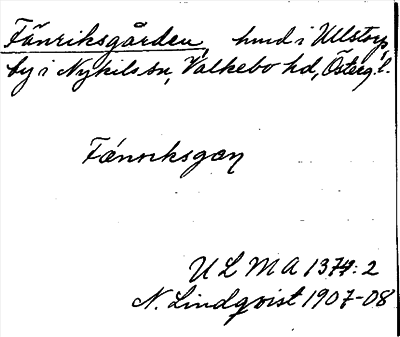 Fänriksgården, hmd i Ullstorp
by i Nykils sn, Valkebo hd, Östergl.
Fánriksgan
ULMA 1374:2
N. Lindqvist 1907-08